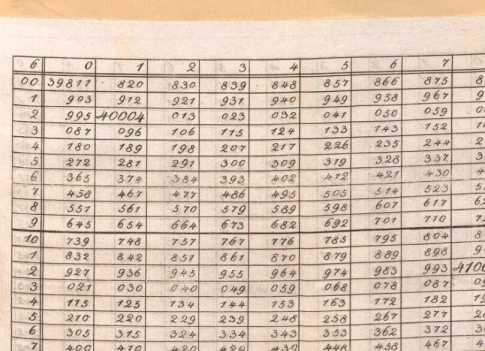 6 0 1 2 3 4 5 6 7 8
00 39811 820 830 839 848 857 866 875 8
1 903 912 921 931 940 949 958 967 9
2 995 40004 013 023 032 041 050 059 0
3 087 096 106 115 124 133 143 152 1
4 180 189 198 207 217 226 235 244 2
5 272 281 291 300 309 319 328 337 3
6 365 374 384 393 402 412 421 430 4
7 458 467 477 486 495 505 514 523 5
8 551 561 570 579 589 598 607 617 62
9 645 654 664 673 682 692 701 710 72
10 739 748 757 767 776 785 795 804 8
1 832 842 851 861 870 879 889 898 9
2 927 936 945 955 964 974 983 993 4100
3 021 030 040 049 059 068 078 087 09
4 115 125 134 144 153 163 172 182 19
5 210 220 229 239 248 258 267 277 28
6 305 315 324 334 343 353 362 372 38
7 400 410 420 429 439 448 458 467 4